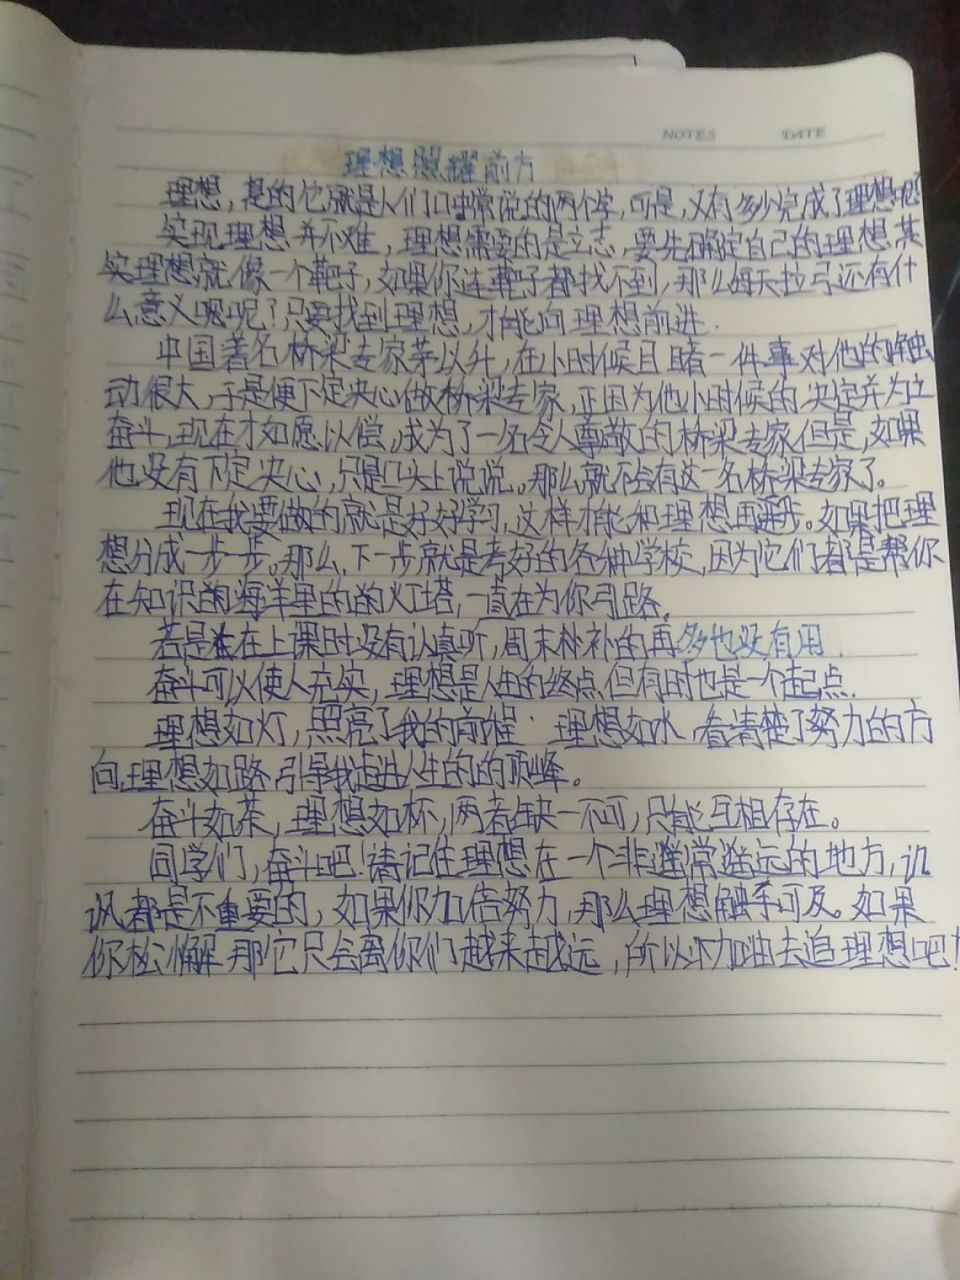 NOTES DATE
理想照耀前方
理想，是的它就是人们口中常说的两个字，可是，又有多少完成了理想呢
实现理想并不难，理想需要的是立志，要先确定自己的理想，其
实理想就像一个靶子，如果你连靶子都找不到，那么每天拉弓还有什
么意义呢？只要找到理想，才能向理想前进．
中国著名桥梁专家茅以升，在小时候目睹一件事对他的触
动很大，于是便下定决心做桥梁专家，正因为他小时候的决定并为之
奋斗，现在才如愿以偿，成为了一名令人尊敬的桥梁专家，但是，如果
他没有下定决心，只是口头上说说。那么就不会有这一名桥梁专家了。
现在我要做的就是好好学习，这样才能和理想再进步。如果把理
想分成一步一步，那么，下一步就是考好的各种学校，因为它们都是帮你
在知识的海洋里的的灯塔，一直在为你引路。
若是在上课时没有认真听，周末补的再多也没有用
奋斗可以使人充实，理想是人生的终点，但有时也是一个起点．
理想如灯，照亮了我的前程．理想如水，看清楚了努力的方
向，理想如路，引导我走进人生的的顶峰。
奋斗如茶，理想如杯，两者缺一不可，只能互相存在。
同学们，奋斗吧！请记住理想在一个非常遥远的地方，认
都是不重要的，如果你加倍努力，那么理想触手可及。如果
你松懈，那它只会离你们越来越远，所以加油去追理想吧！